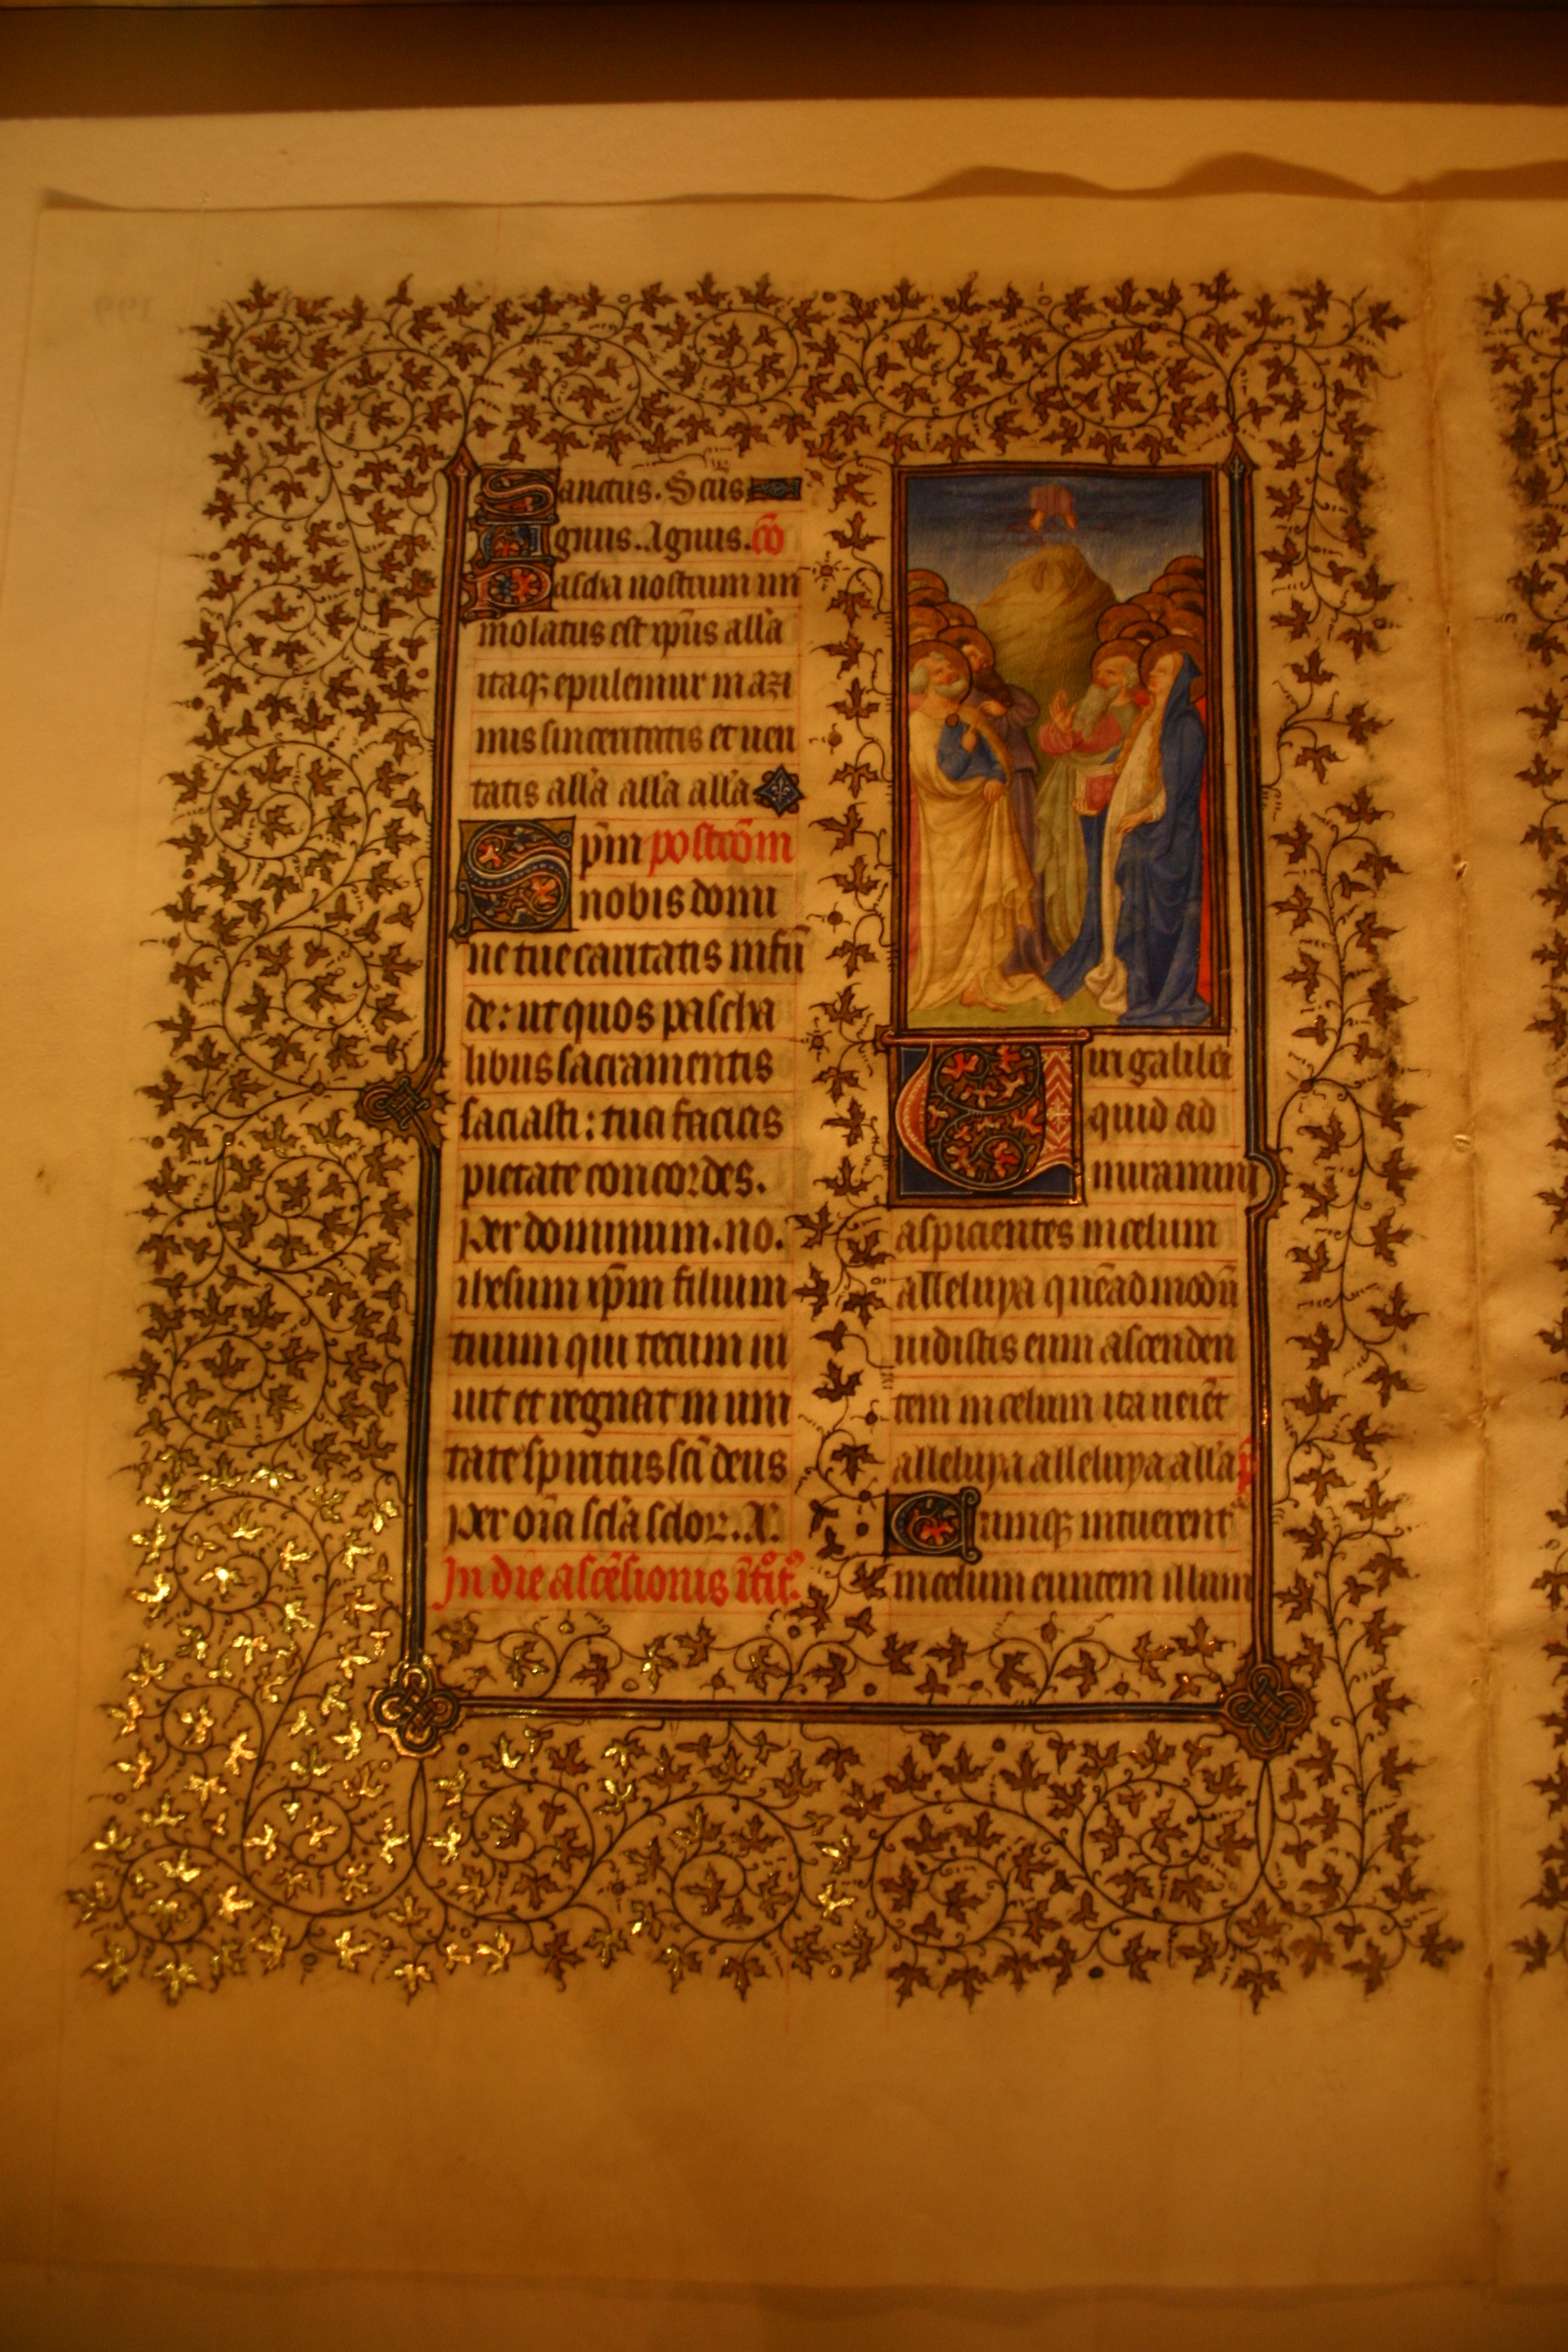 Sanctus. Scūs
Agnus. Agnus. cō
Pascha nostrum im
molatus est xp̄us all'a
itaqꝫ epulemur in azi
mis sinceritatis et ueri
tatis all'a all'a all'a
Sp̄m postcōm
nobis domi
ne tue caritatis infū
de: ut quos pascha
libus sacramentis
saciasti: tua facias
pietate concordes.
Per dominum. no.
ihesum xp̄m filium
tuum qui tecum ui
uit et regnat in uni
tate spiritus sc̄i deus
per oīa scl'a scloꝝ. A.
In die ascēsionis
Uiri galilei
quid ad
miramini
aspicientes in celum
alleluya quēadmodū
uidistis eum ascenden
tem in celum ita ueiēt
alleluya alleluya all'a p̄
Cumqꝫ intuerent
in celum euntem illum